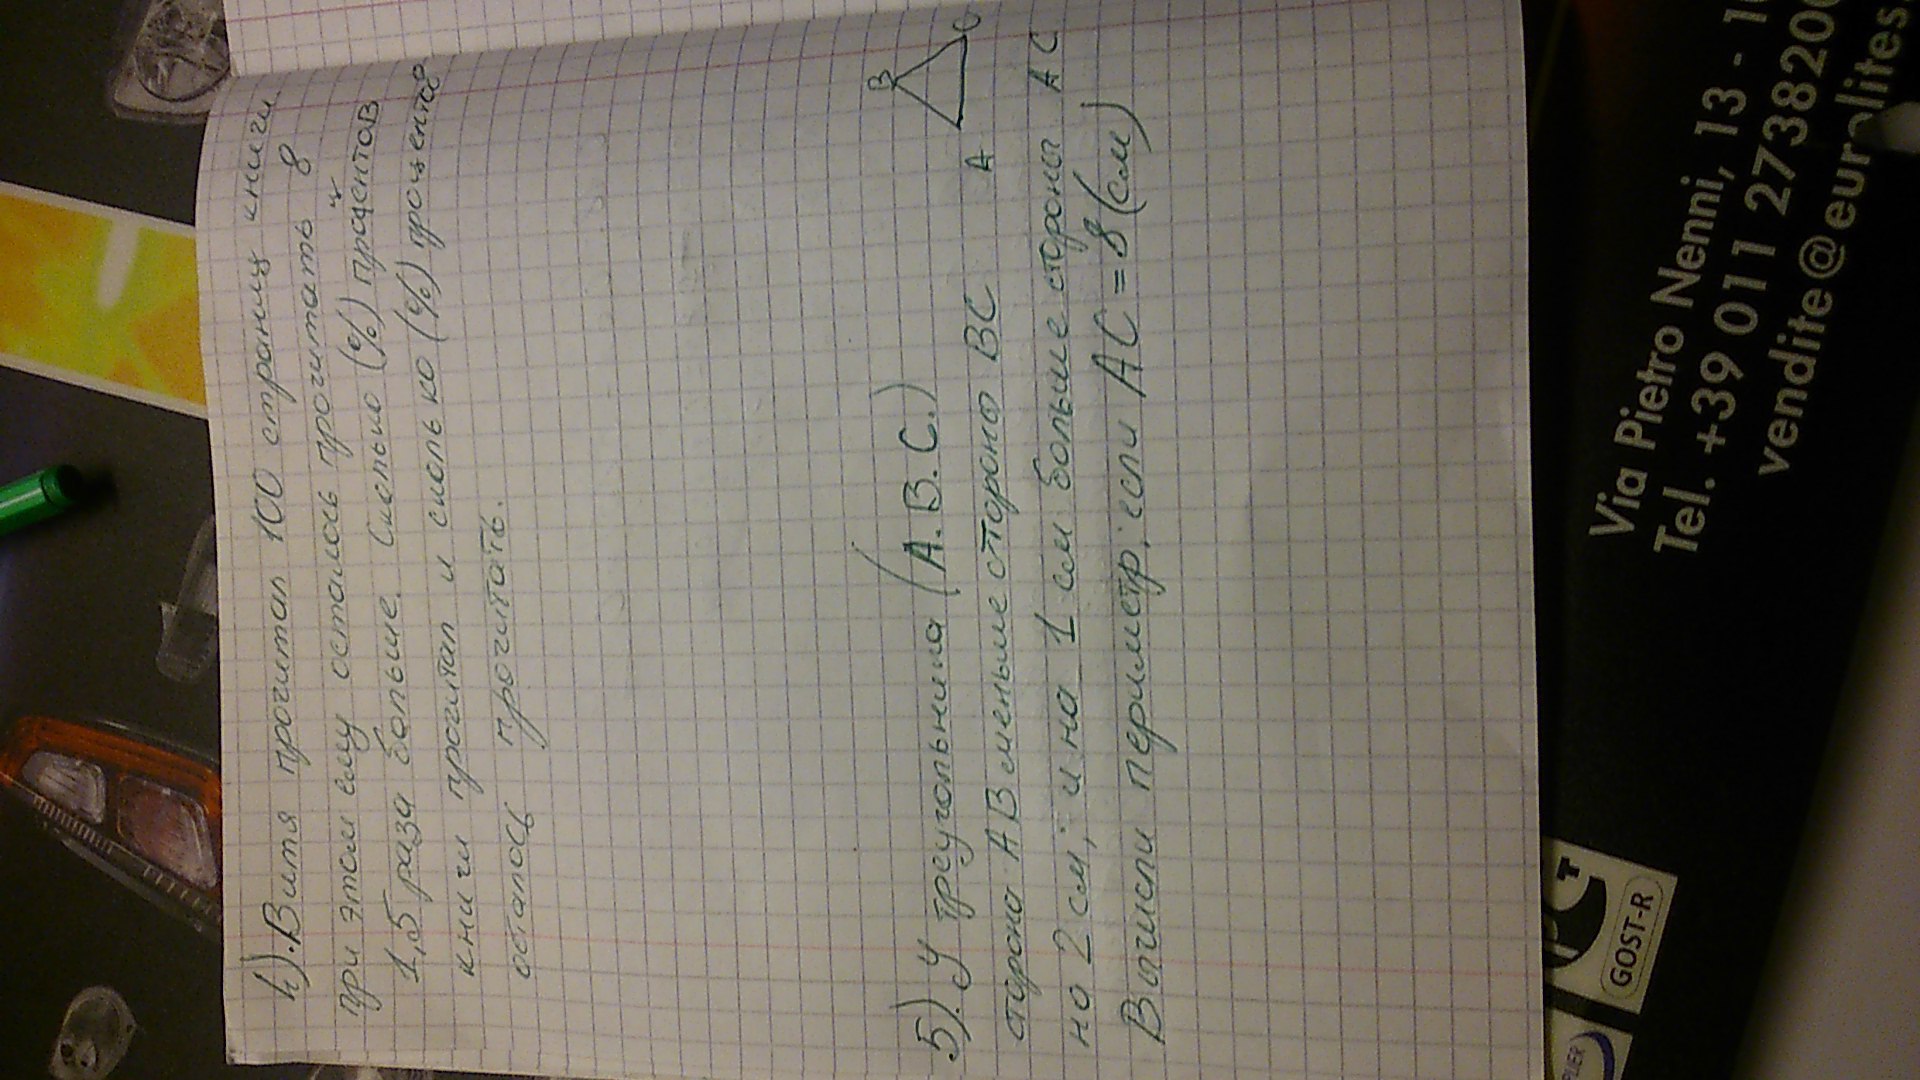 4). Витя прочитал 100 страниц книги.
при этом ему осталось прочитать в
1,5 раза больше. Сколько (%) процентов
ц
книги прочитал и сколько (%) процентов
осталось прочитать.
5). У треугольника (А.В.С.)
сторона АВ меньше стороны ВС
на 2 см; и на 1 см больше стороны АС
Вычисли периметр; если АС = 8 (см)
В
А
С
Via Pietro Nenni, 13 - 10
Tel. +39 011 2738200
vendite@eurolites.
GOST-R